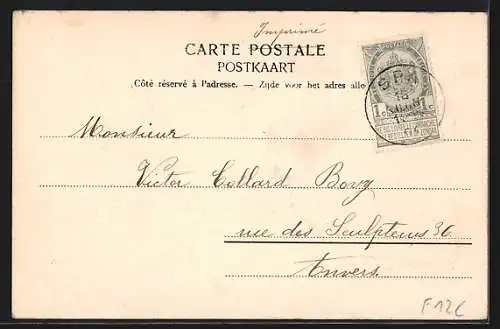 Imprimé
CARTE POSTALE
POSTKAART
(Côté réservé à l'adresse. — Zijde voor het adres alle
SPA
1 c. 1 c.
Monsieur
Victor Collard Bovy
rue des Sculpteurs 36
Anvers
F12C